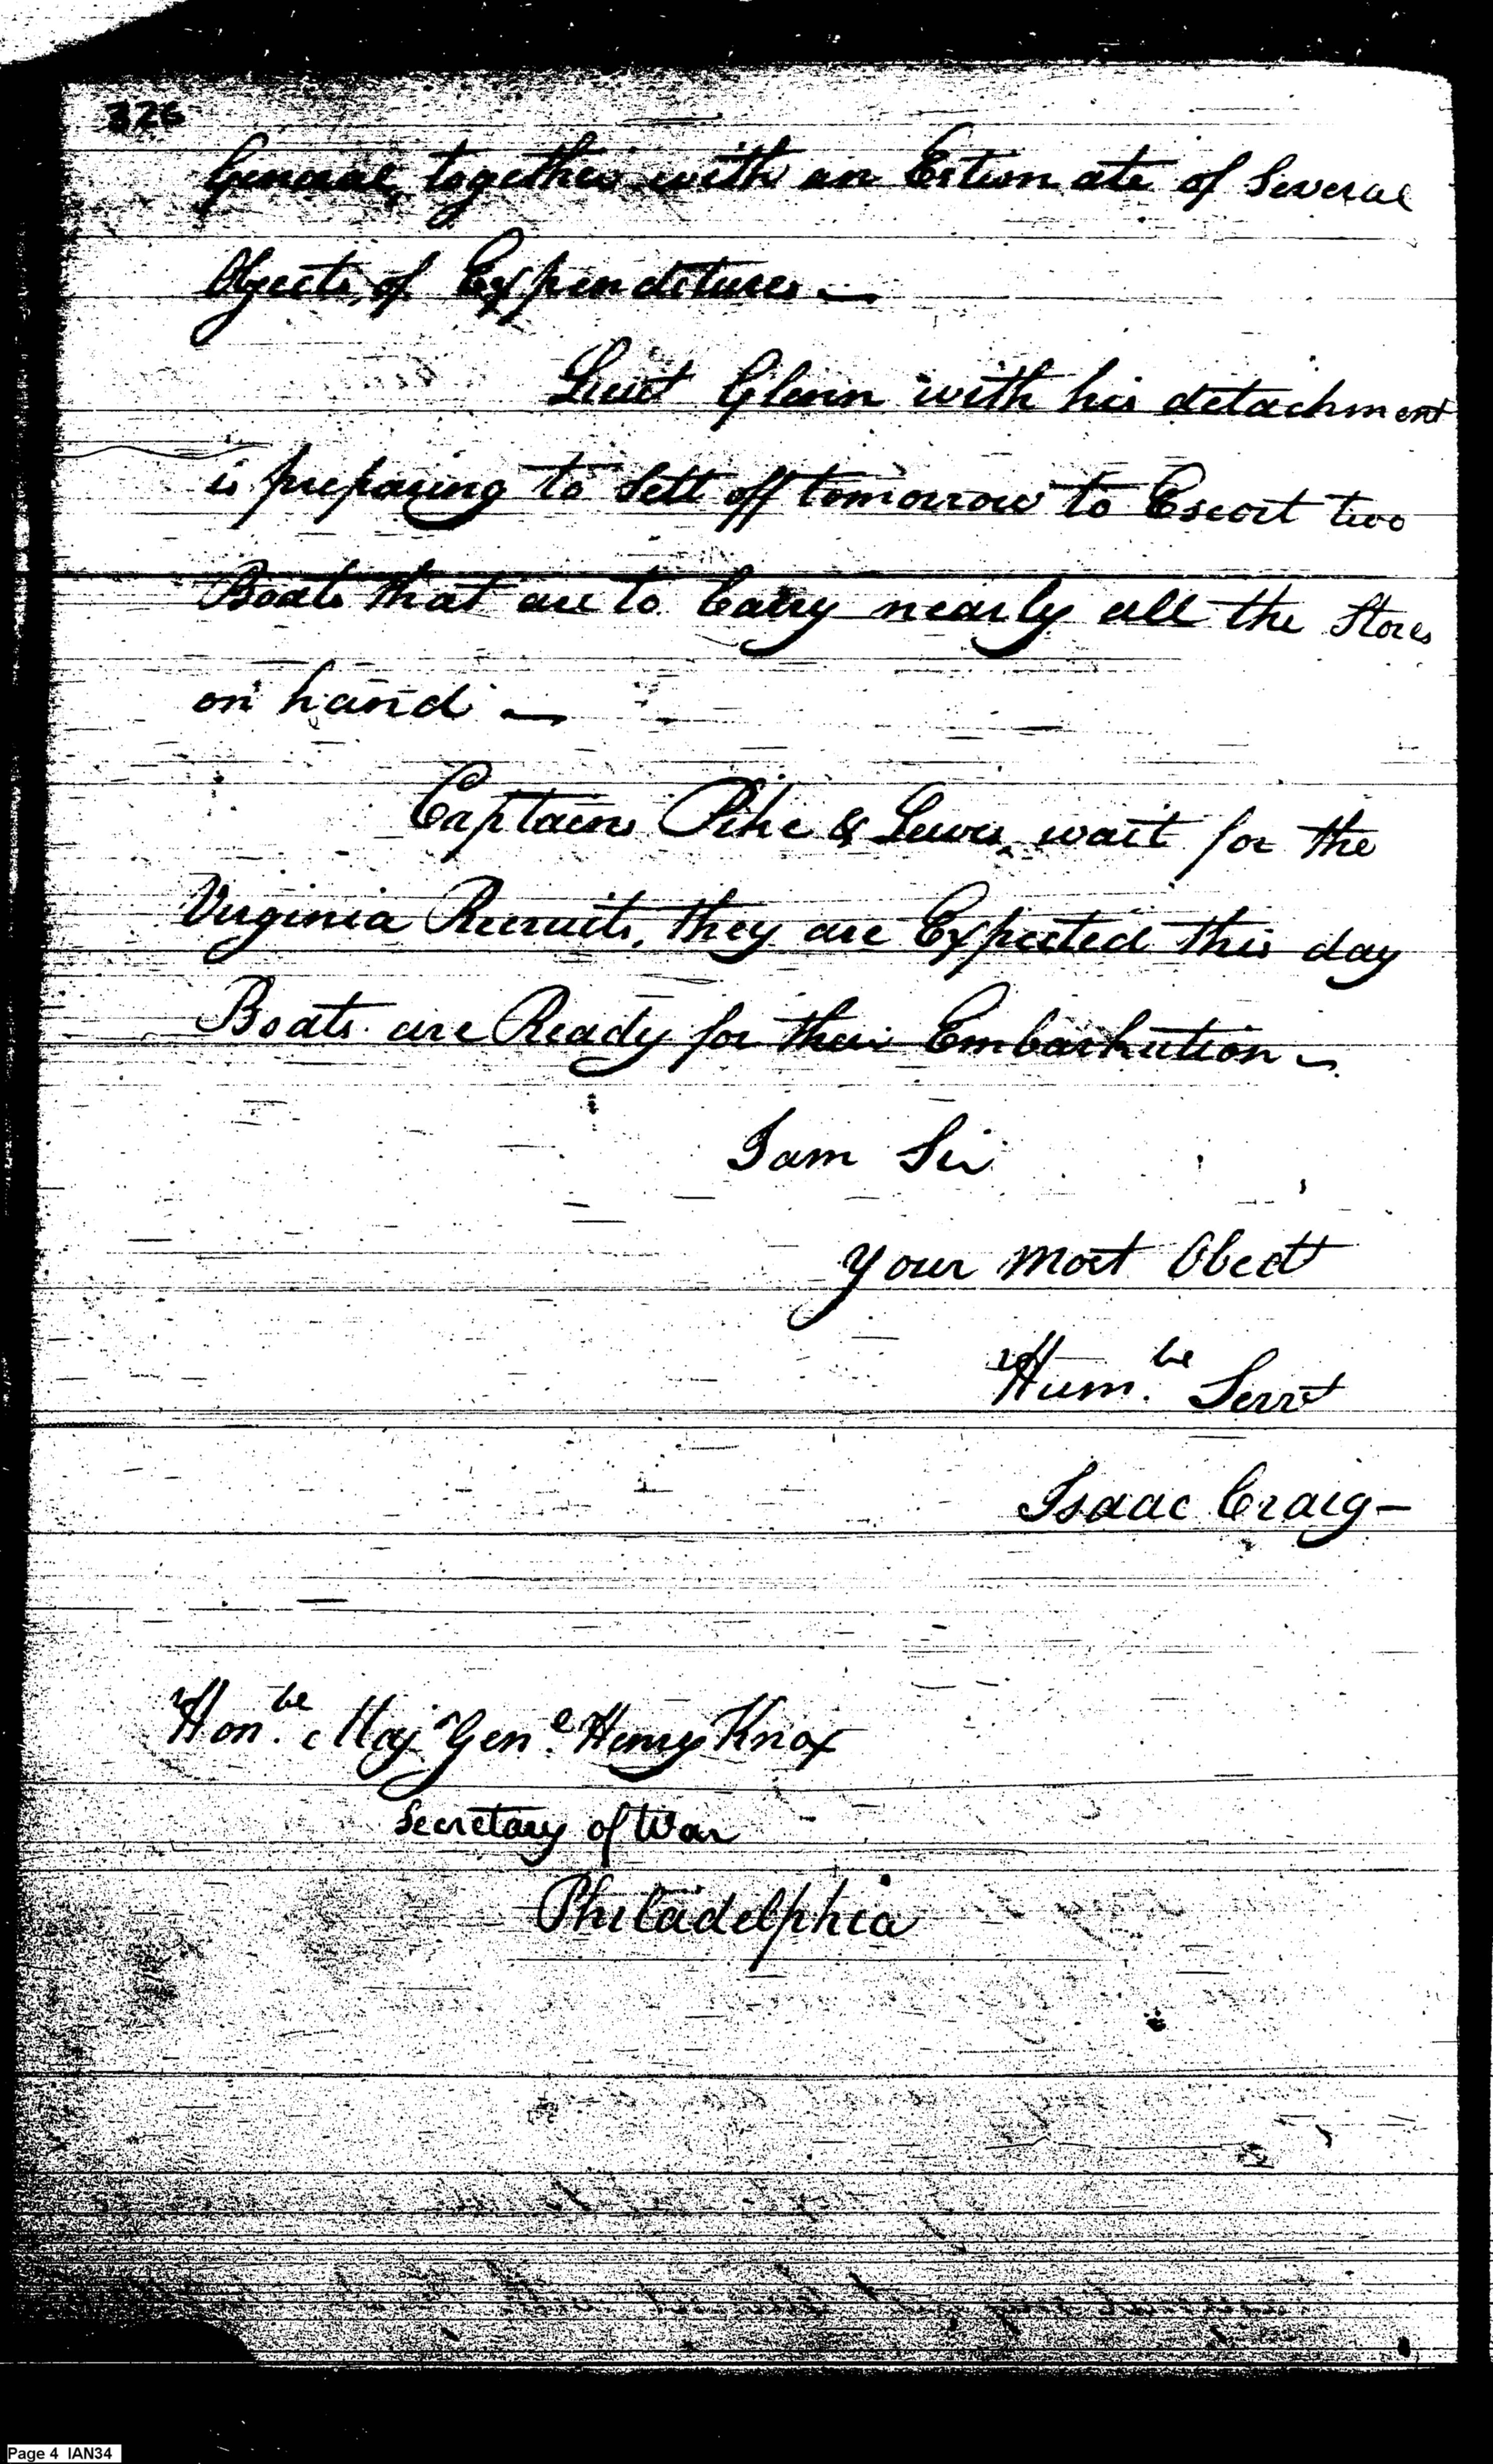 326
General, together with an Estimate of Several
Objects, of Expenditures —
Lieut Glenn with his detachment
is preparing to Sett off tomorrow to Escort two
Boats that are to Carry nearly all the Stores
on hand —
Captains Pike & Lewis, wait for the
Virginia Recruits, they are Expected this day
Boats are Ready for their Embarkation —
I am Sir
your most Obedt
Hum.ble Servt
Isaac Craig —
Hon.ble Majr Gen.l Henry Knox
Secretary of War
Philadelphia
Page 4 IAN34